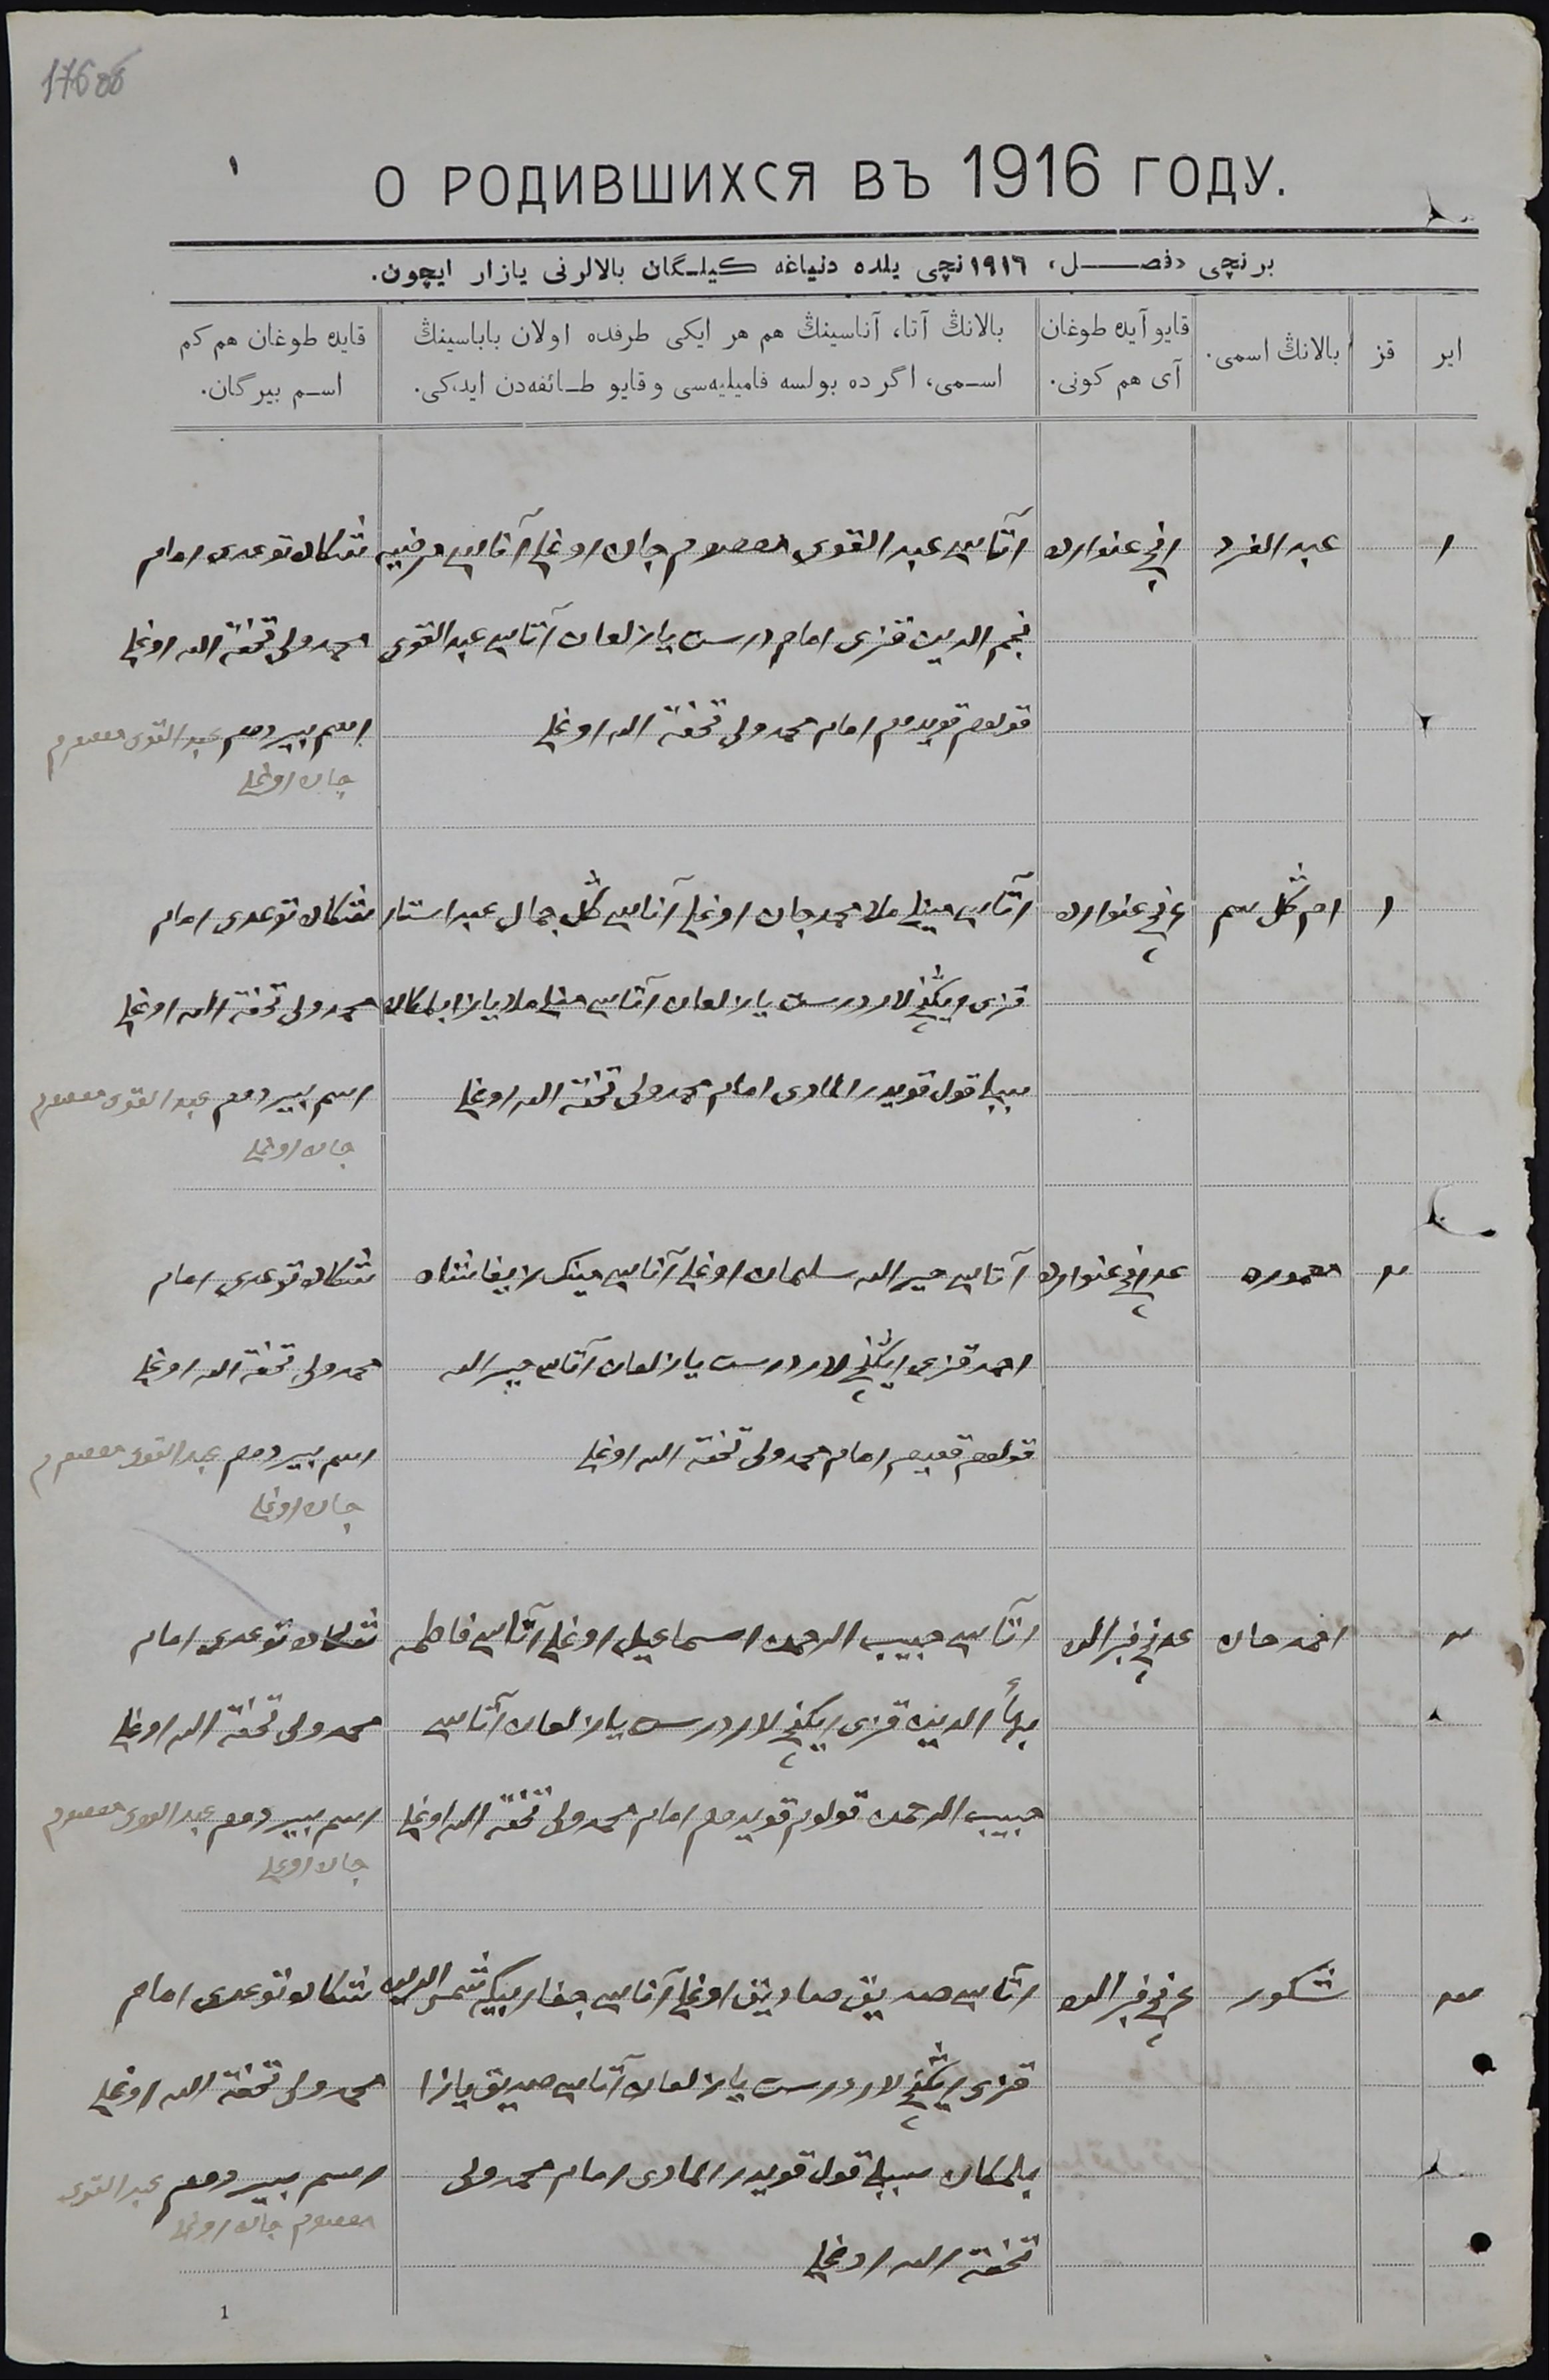 17606
١
О РОДИВШИХСЯ ВЪ 1916 ГОДУ.
برنچی «فصـــل» ١٩١٦ نچی یلده دنیاغه کیلـگان بالالرنی یازار ایچون.
ایر
قز
بالانڭ اسمی.
قایو آیده طوغان
آی هم کونی.
بالانڭ آتا، آناسینڭ هم هر ایکی طرفده اولان باباسینڭ
اسـمی، اگرده بولسه فامیلیه‌سی وقایو طـائفه‌دن ایدکی.
قایده طوغان هم کم
اسـم بیرگان.
١
عبد الفرد
نچی غنوارده
آتاسی عبد القوی معصوم جان اوغلی آناسی مرضیه
نجم الدین قزی امام درست یازلغان آتاسی عبد القوی
قولوم قویدمم امام محمد ولی تحفة الله اوغلی
توغدی امام
محمد ولی تحفة الله اوغلی
اسم بیردمم عبد القوی معصوم
جان اوغلی
١
ام گل سم
نچی غنوارده
آتاسی مینلی ملا محمد جان اوغلی آناسی گل جمال عبد استار
قزی ایکنچی لار درست یازلغان آتاسی منلی ملا یازا بلمکان
سببلی قول قویدرالمادی امام محمد ولی تحفة الله اوغلی
توغدی امام
محمد ولی تحفة الله اوغلی
اسم بیردمم عبد القوی معصوم
جان اوغلی
٢
معموره
نچی غنوارده
آتاسی خیر الله سلیمان اوغلی آناسی
احمد قزی ایکنچی لار درست یازلغان آتاسی خیر الله
قولوم امام محمد ولی تحفة الله اوغلی
توغدی امام
محمد ولی تحفة الله اوغلی
اسم بیردمم عبد القوی معصوم
جان اوغلی
٢
احمد جان
نچی فبرالده
آتاسی حبیب الرحمن اسماعیل اوغلی آناسی فاطمه
بهأ الدین قزی ایکنچی لار درست یازلغان آتاسی
حبیب الرحمن قولوم قویدمم امام محمد ولی تحفة الله اوغلی
توغدی امام
محمد ولی تحفة الله اوغلی
اسم بیردمم عبد القوی معصوم
جان اوغلی
٣
شکور
نچی فبرالده
آتاسی صدیق صادیق اوغلی آناسی جفار بیکه شمس الدین
قزی ایکنچی لار درست یازلغان آتاسی صدیق یازا
بلمکان سببلی قول قویدرالمادی امام محمد ولی
تحفة الله اوغلی
توغدی امام
محمد ولی تحفة الله اوغلی
اسم بیردمم عبد القوی
معصوم جان اوغلی
1